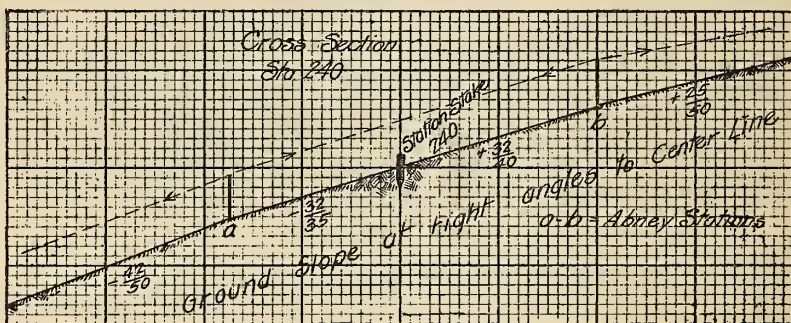 Cross Section
Sta 240
Station Stake
240
+ 25
50
b
+ 32
40
a
- 32
35
- 42
50
Ground Slope at right angles to Center Line
a-b = Abney Stations